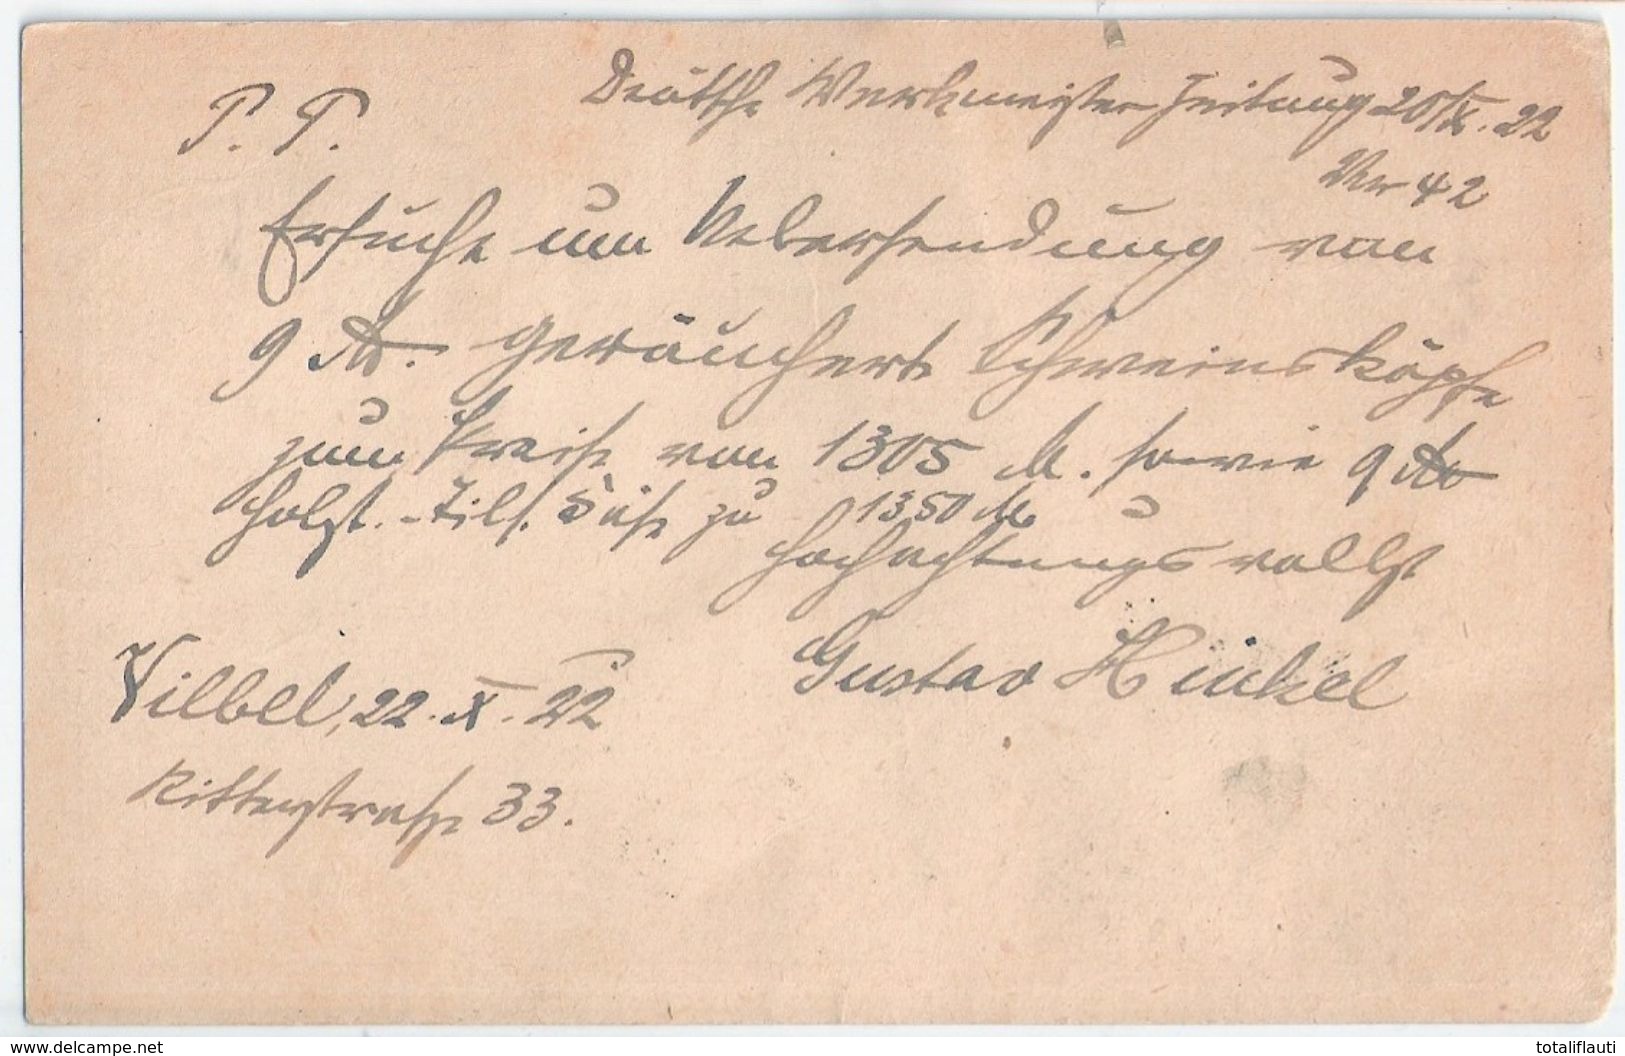 Deutsche Werkmeister Zeitung 20/X. 22
P. P.
Nr 42
Ersuche um Uebersendung von
9 ℔. geräucherte Schweinsköpfe
zum Preise von 1305 M. sowie 9 ℔
holst. - Tils. Käse zu 1350 M
Hochachtungsvollst
Gustav Hinkel
Vilbel, 22. X. 22
Ritterstraße 33.
www.delcampe.net
totaliflauti